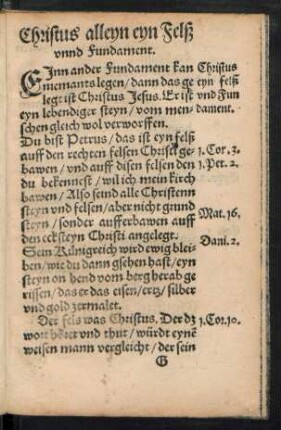 Christus alleyn eyn Felß
vnnd Fundament.
EInn ander Fundament kan
niemants legen / dann das ge
legt ist Christus Jesus. Er ist
eyn lebendiger steyn / vom men-
schen gleich wol verworffen.
Du bist Petrus / das ist eyn felß
auff den rechten felsen Christ ge-
bawen / vnd auff disen felsen den
du bekennest / wil ich mein kirch
bawen / Also seind alle Christenn
steyn vnd felsen / aber nicht grund
steyn / sonder aufferbawen auff
den ecksteyn Christi angelegt.
Sein Künigreich wird ewig blei
ben / wie du dann gsehen hast / eyn
steyn on hend vom berg herab ge
rissen / das er das eisen / ertz / silber
vnd gold zermalet.
Der fels was Christus. Der dz
wort höret vnd thut / würdt eynē
weisen mann vergleicht / der sein
G
Christus
eyn felß
vnd Fun
dament.
1. Cor. 3.
1. Pet. 2.
Mat. 16.
Dani. 2.
1. Cor. 10.